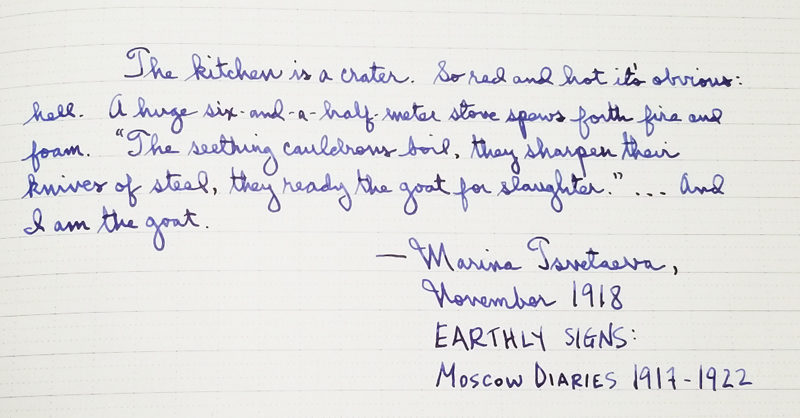 The kitchen is a crater. So red and hot it's obvious:
hell. A huge six-and-a-half-meter stove spews forth fire and
foam. "The seething cauldrons boil, they sharpen their
knives of steel, they ready the goat for slaughter." ... And
I am the goat.
— Marina Tsvetaeva,
November 1918
EARTHLY SIGNS:
MOSCOW DIARIES 1917-1922